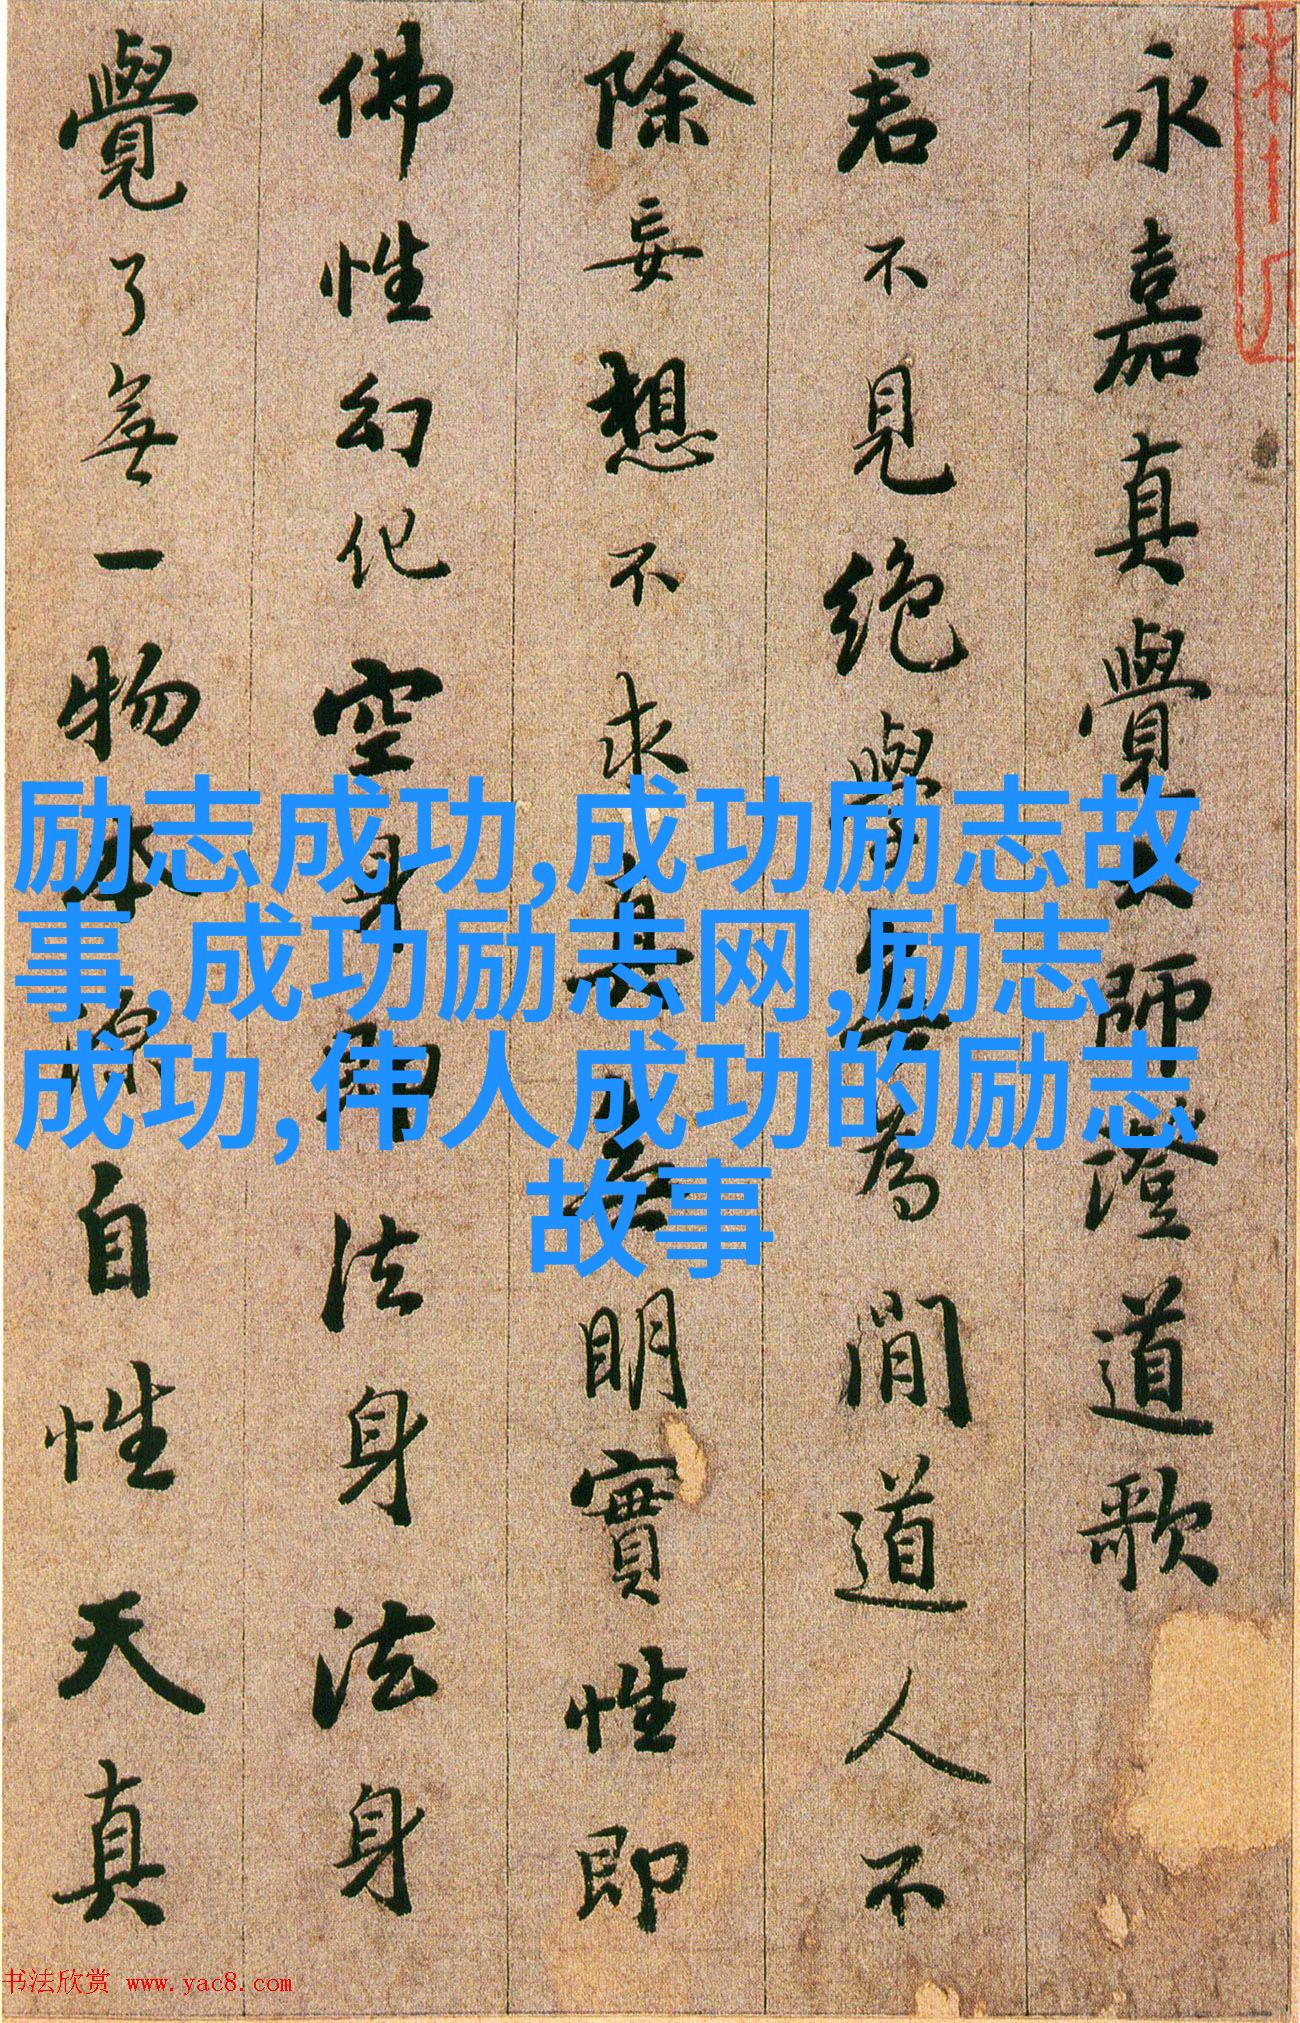 永嘉真覺大師證道歌
君不見絕學無為閒道人不
除妄想不求真無明實性即
佛性幻化空身即法身法身
覺了無一物本源自性天真
励志成功,成功励志故
事,成功励志网,励志
成功,伟人成功的励志
故事
书法欣赏 www.yac8.com